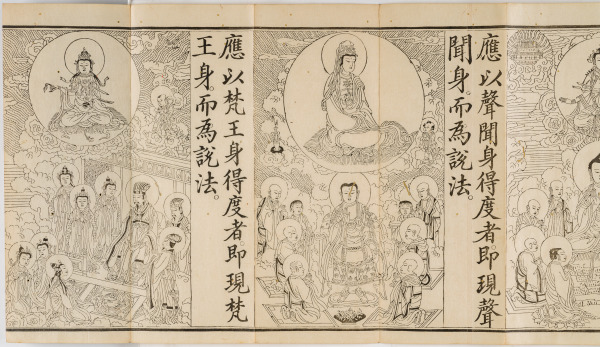 應以聲聞身得度者。即現聲
聞身。而為說法。
應以梵王身得度者。即現梵
王身。而為說法。